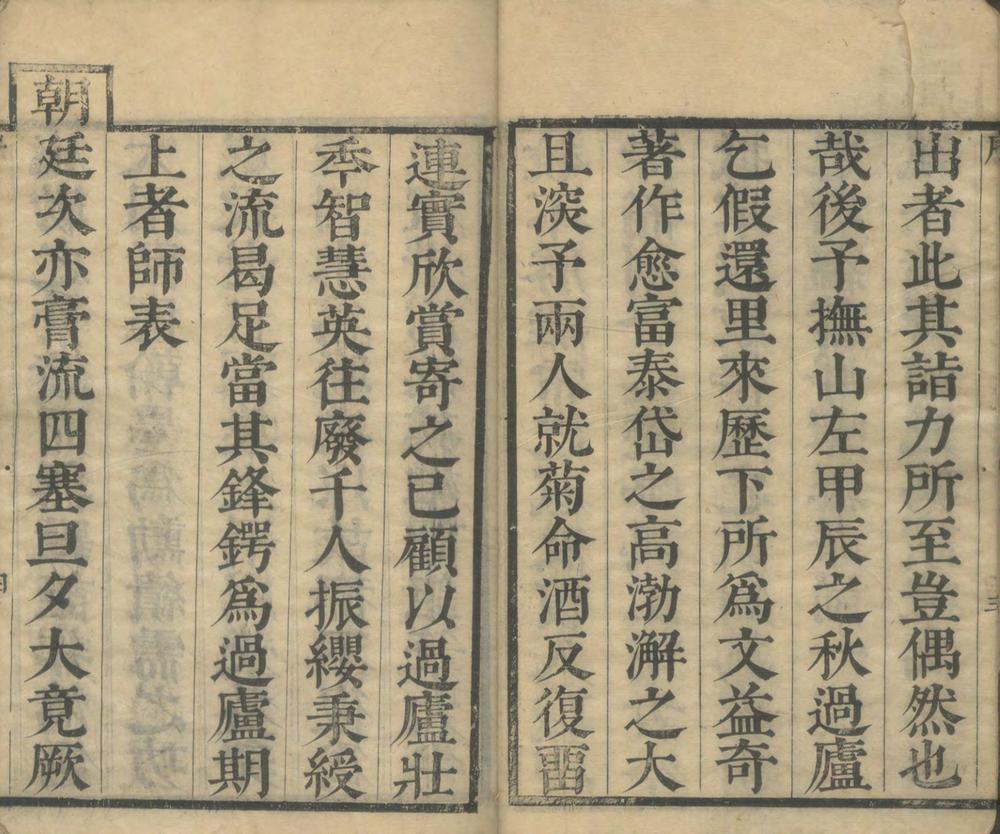 出者此其詣力所至豈偶然也
哉後予撫山左甲辰之秋過廬
乞假還里來歷下所爲文益奇
著作愈富泰岱之高渤澥之大
且深予兩人就菊命酒反復畱
連實欣賞寄之已顧以過廬壯
秊智慧英往廢千人振纓秉綬
之流曷足當其鋒鍔爲過廬期
上者師表
朝廷次亦膏流四塞旦夕大竟厥